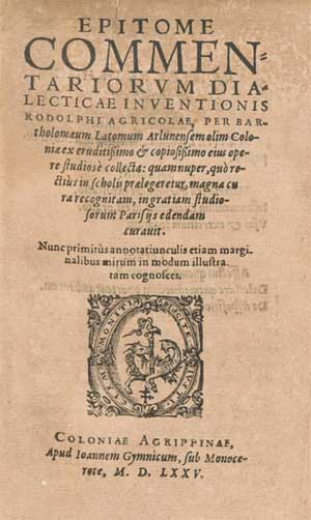 EPITOME
COMMEN-
TARIORVM DIA-
LECTICAE INVENTIONIS
RODOLPHI AGRICOLAE, PER BAR-
tholomæum Latomum Arlunensem olim Colo-
niæ ex eruditißimo & copiosißimo eius ope-
re studiosè collecta: quam nuper, quò re-
ctius in scholis prælegeretur, magna cu
ra recognitam, in gratiam studio-
sorum Parisijs edendam
curauit.
Nunc primùm annotatiunculis etiam margi-
nalibus mirum in modum illustra
tam cognosces.
COLONIAE AGRIPPINAE,
Apud Ioannem Gymnicum, sub Monoce-
rote, M. D. LXXV.